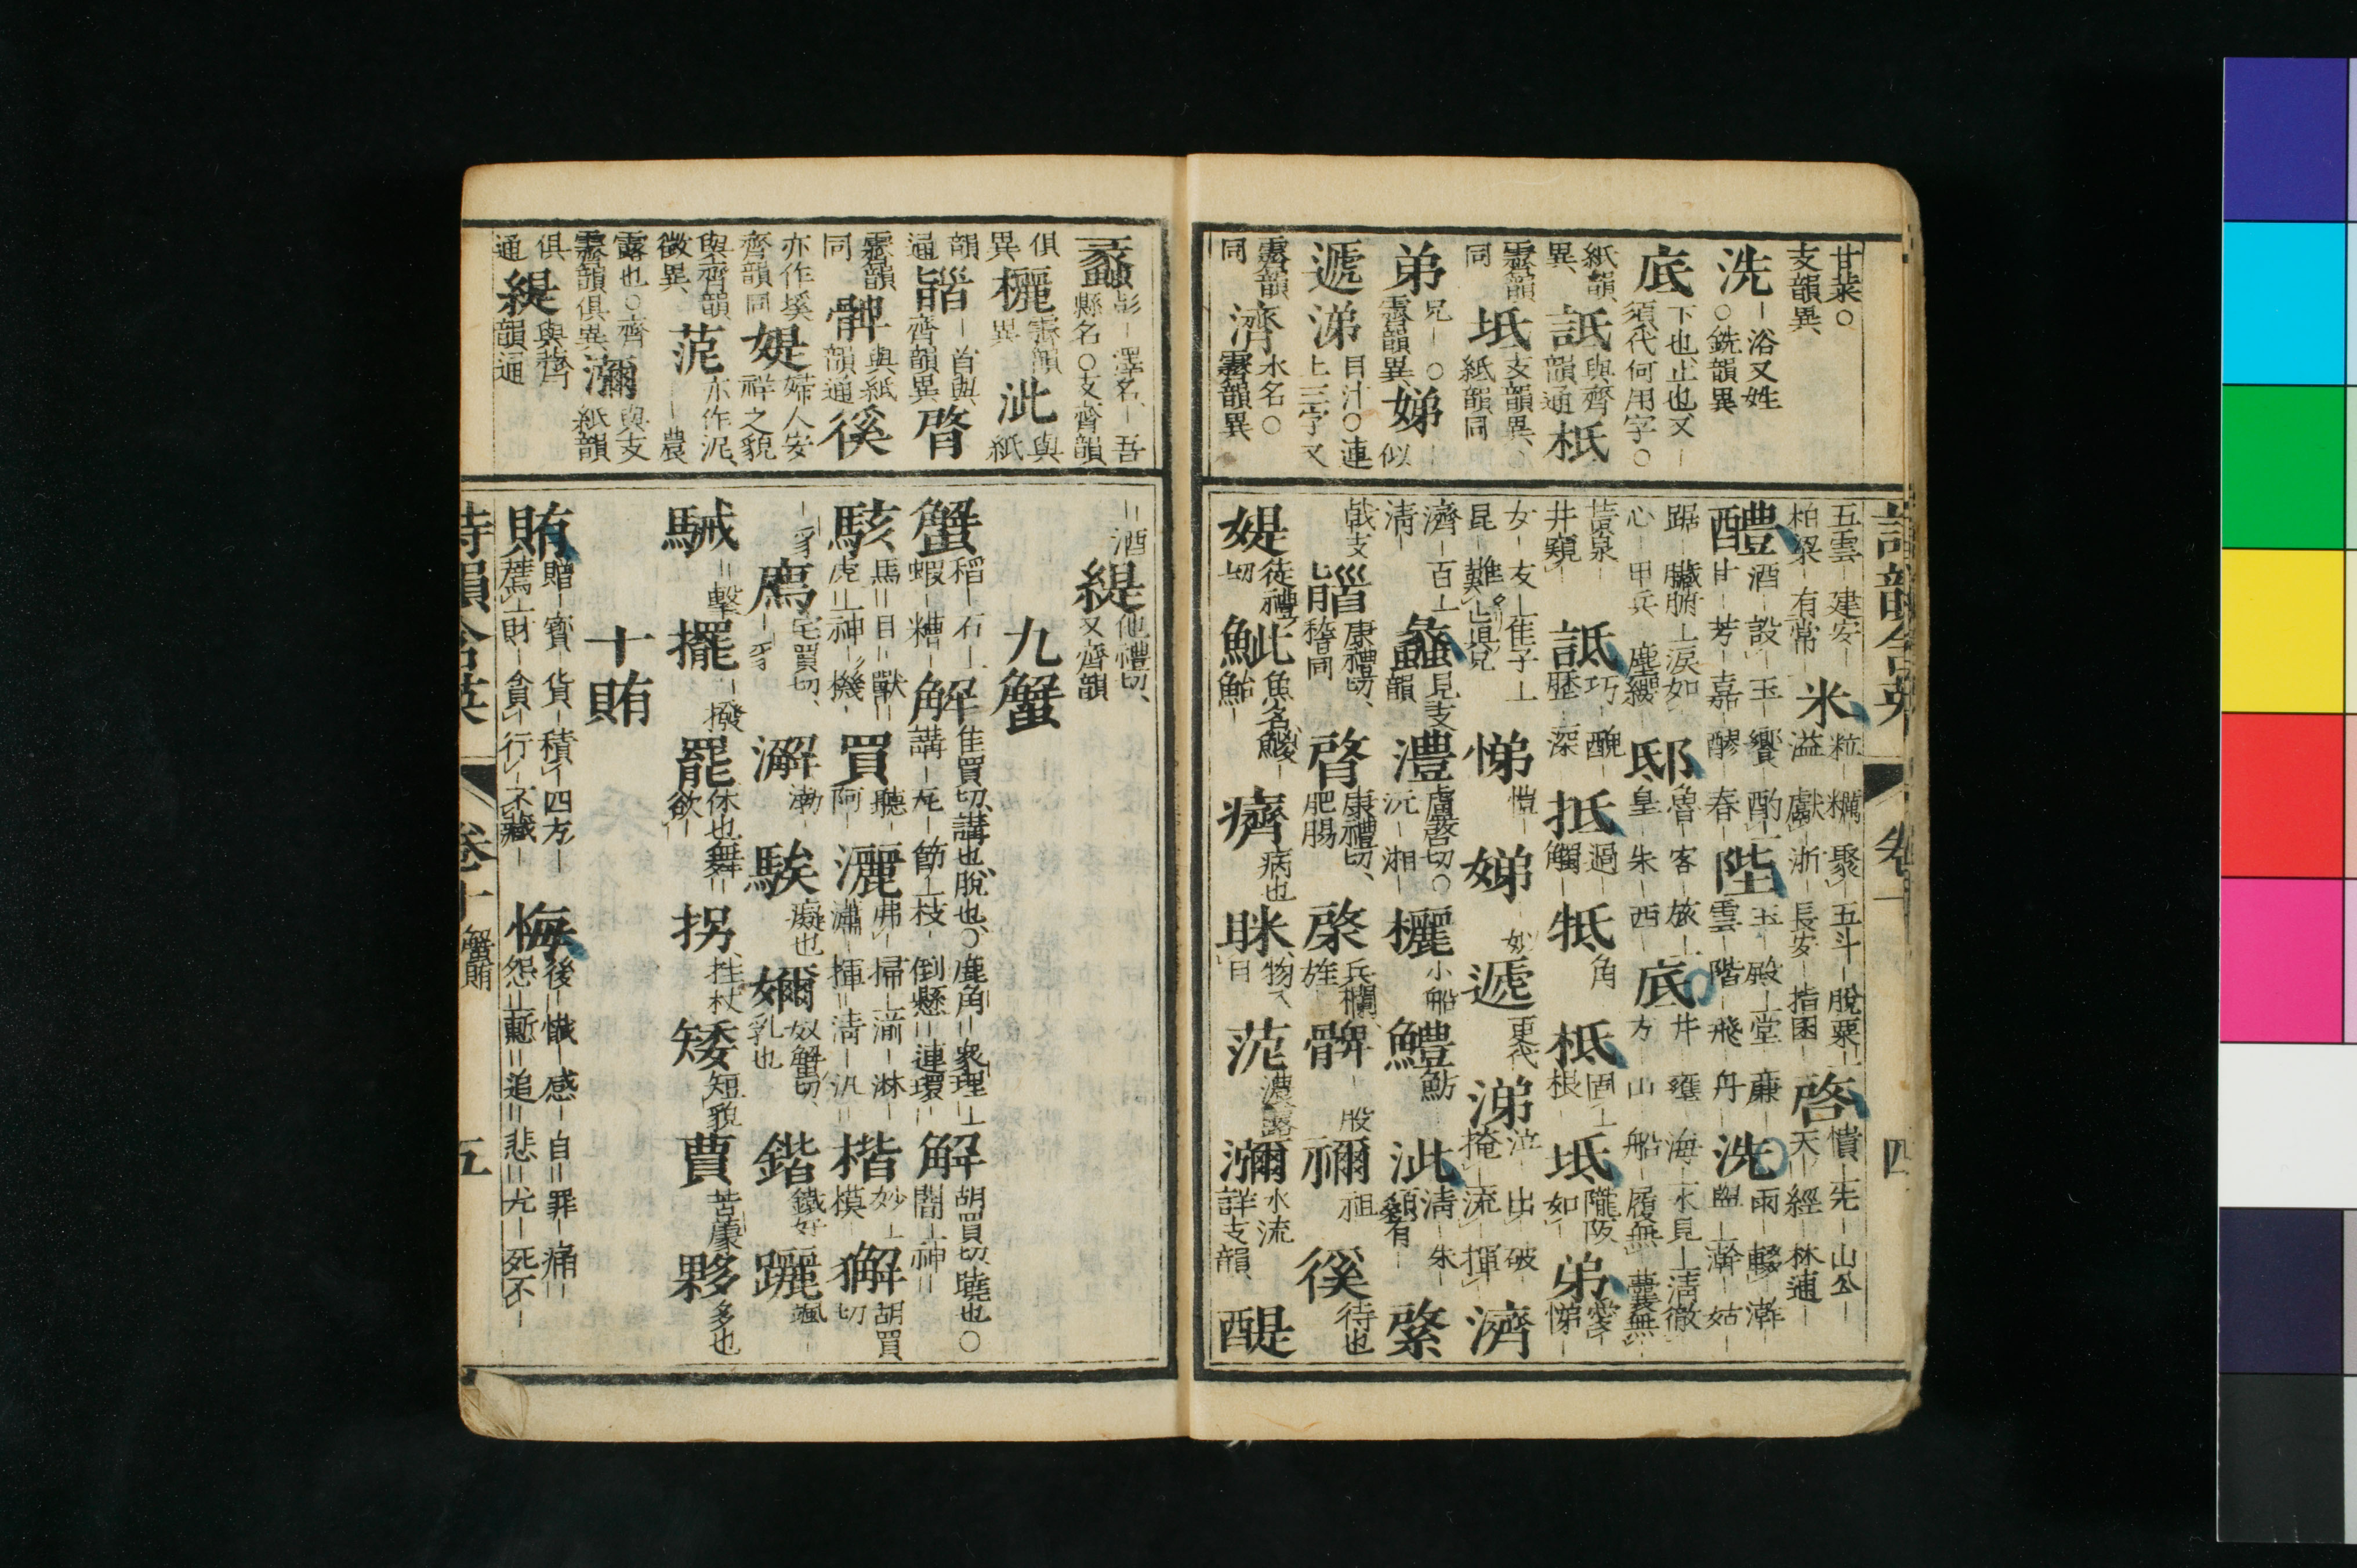 甘菜○
支韻異
洗
－浴又姓
○銑韻異
底
下也止也又－
須代何用字○
紙韻
異
詆
與齊
韻通
柢
霽韻
同
坻
支韻異
紙韻同
弟
兄－○
霽韻異
娣
似
遞
涕
目汁○連
上三字又
霽韻
同
濟
水名○
霽韻異
五雲－建安－
柏梁－有常
米
粒－糲－聚－五斗－脫粟－
溢－獻－浙－長安－指囷－
啓
憤－先－山公－
天－經－林逋－
醴
酒－設－玉－饗－酌－
甘－芳－嘉－醪－春－
陛
玉－殿－堂－廉－
雲－階－飛－丹－
洗
雨－
盥－澣－姑－
踞－臟腑－涙如－
心－甲兵－塵纓－
邸
魯－客－旅－
皇－朱－西－
底
井－甕－海－水見－清徹－
方－山－船－履無－囊無－
黃泉－
井窺－
詆
巧－醜－
歷－深－
抵
過－
觸－
牴
角
柢
固－
根－
坻
隴阪
如－
弟
愛－
悌－
女－友－佳子－
昆－難－具兄－
悌
愷－
娣
妙－
遞
更代
涕
泣－出－破－
掩－流－揮－
濟
濟－百－
清－
蠡
見支
韻
澧
盧啓切○
沅－湘－
欐
小船
鱧
魴－
泚
清－朱－
顙有－
綮
戟支
䭫
康禮切、
稽同
䏿
康禮切、
肥腸
棨
兵欄、
旌－
髀
－股
禰
祖－
徯
待也
媞
徒禮
切
鮆
魚名
鮎－
癠
病也
眯
物入
目
茈
濃露
濔
水流
詳支韻
醍
四
蠡
彭－澤名、－吾
縣名○支齊韻
俱
異
欐
霽韻
異
泚
與
紙
韻
通
䭫
－首與
齊韻異
䏿
霽韻
同
髀
與紙
韻通
徯
亦作㙠
齊韻同
媞
婦人安
祥之貌
與齊韻
微異、
茈
亦作泥、
－農
露也○齊
霽韻俱異
濔
與支
紙韻
俱
通
緹
與齊
韻通
＝酒
緹
他禮切、
又齊韻
九蟹
蟹
稻－石－
蝦－糟－
解
佳買切、講也、脫也、○鹿角＝眾理－
講－瓦－節－枝－倒懸＝連環＝
解
胡買切、曉也○
闇－神＝
駭
馬＝目＝獸＝
虎－神－機－
買
聽－
阿－
灑
弗－掃－湔－淋－
瀟－揮＝清－汛＝
楷
妙－
模－
獬
胡買
切
－豸
廌
宅買切、
－豸
澥
渤－
騃
癡也
嬭
奴蟹切、
乳也
鍇
鐵好
躧
颯－
駴
＝擊
擺
－撥
罷
休也舞＝
欲－
拐
拄杖
矮
短貌
蕒
苦蕒
夥
多也
十賄
賄
贈－賓－貨－積－四方－
薦－財－貪－行－不藏－
悔
後－懺－感－自＝罪－痛＝
怨－慙＝追＝悲＝尤－死不－
詩韻含英
卷十
蟹賄
五